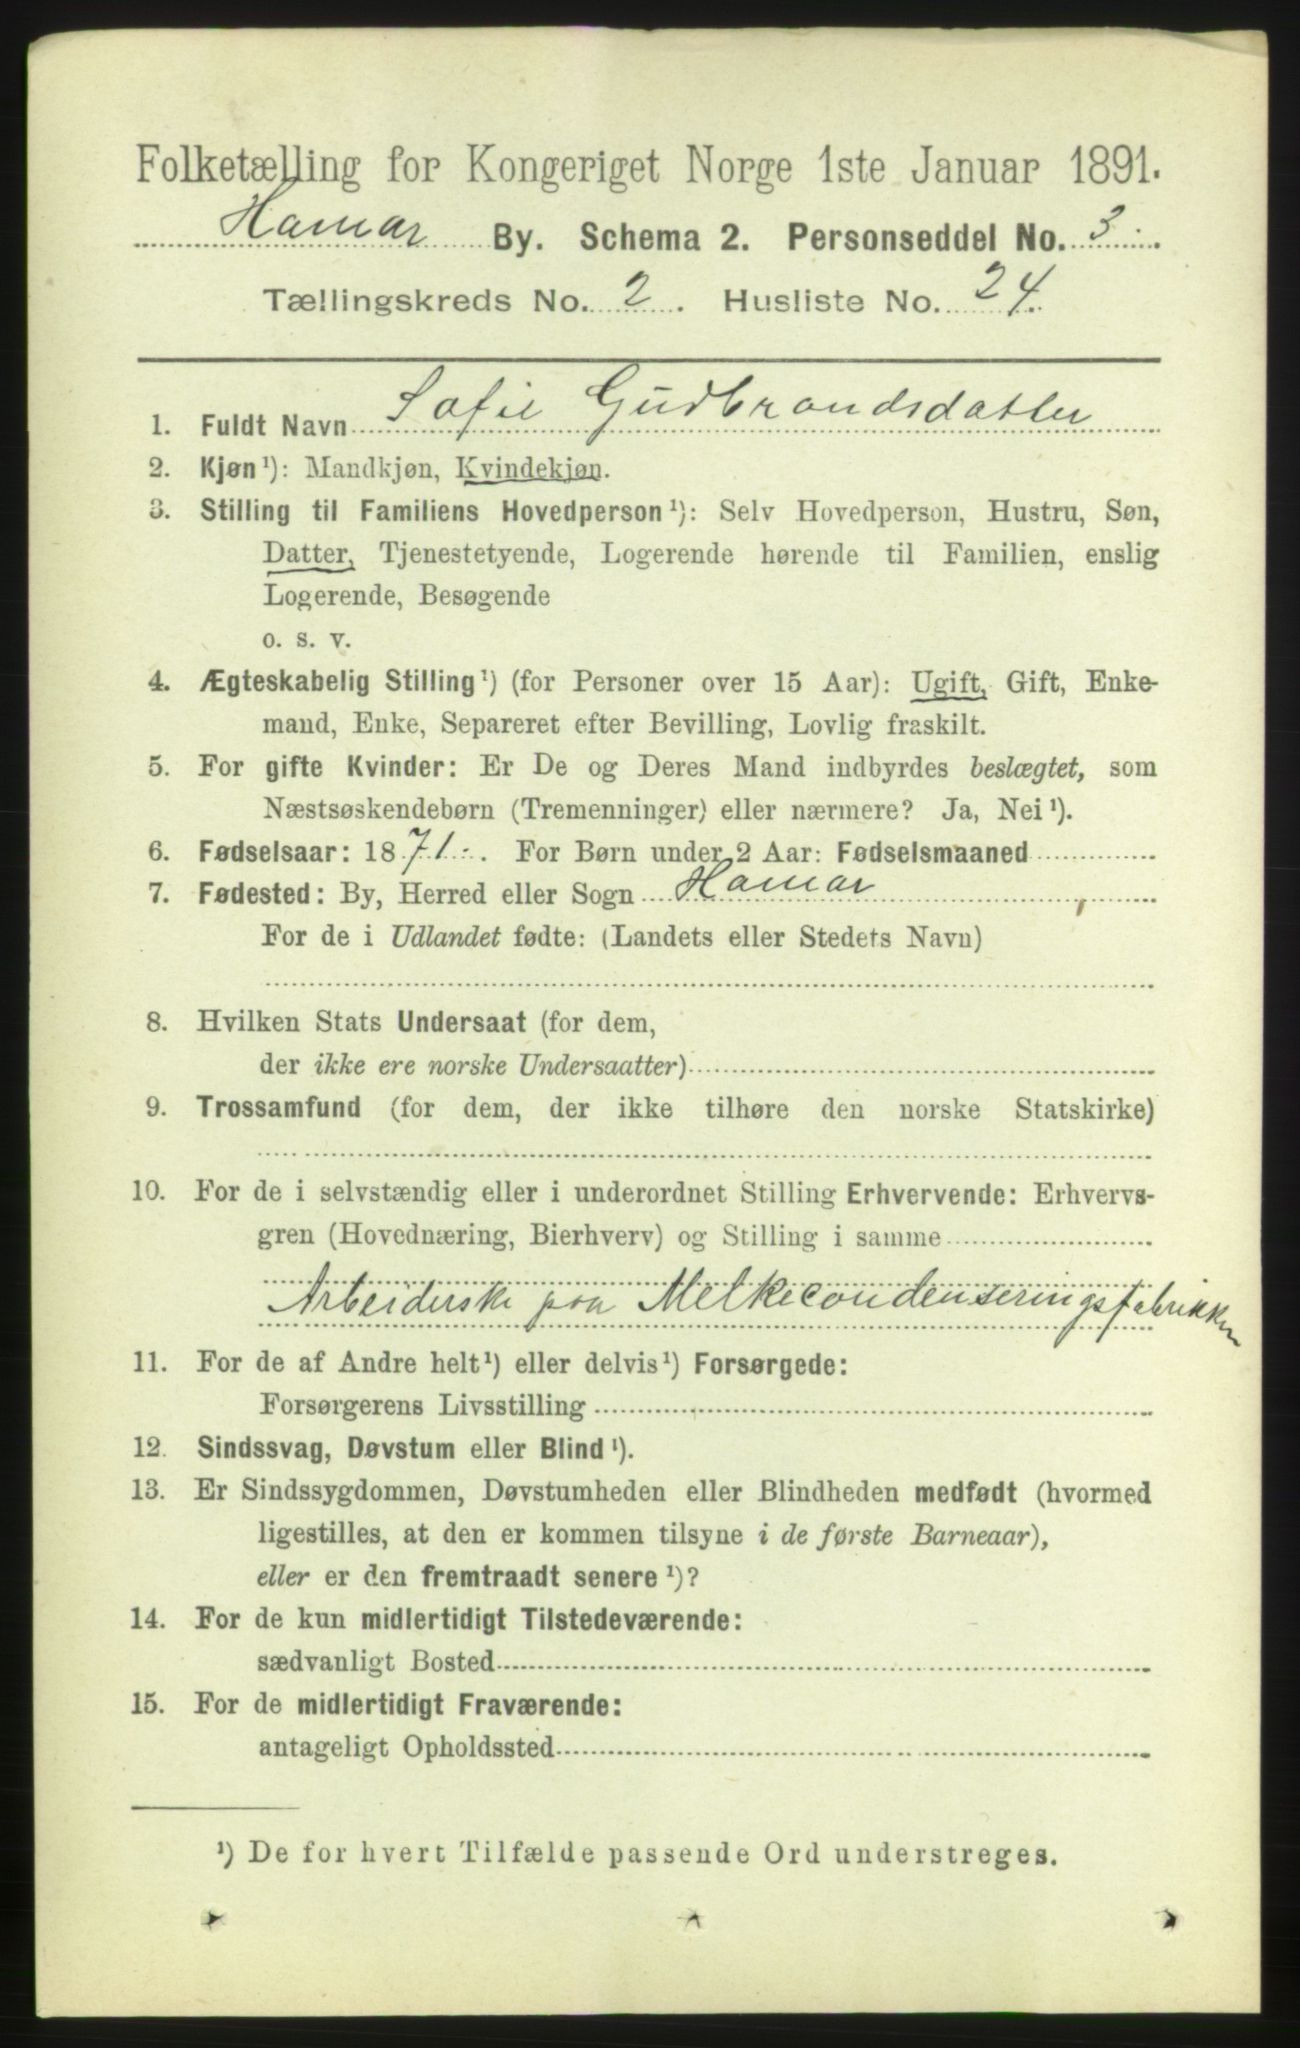 Folketælling for Kongeriget Norge 1ste Januar 1891.
Hamar By. Schema 2. Personseddel No. 3.
Tællingskreds No. 2. Husliste No. 24.
1. Fuldt Navn Sofie Gudbrandsdatter
2. Kjøn¹): Mandkjøn, Kvindekjøn.
3. Stilling til Familiens Hovedperson¹): Selv Hovedperson, Hustru, Søn,
Datter, Tjenestetyende, Logerende hørende til Familien, enslig
Logerende, Besøgende
o. s. v.
4. Ægteskabelig Stilling¹) (for Personer over 15 Aar): Ugift, Gift, Enke-
mand, Enke, Separeret efter Bevilling, Lovlig fraskilt.
5. For gifte Kvinder: Er De og Deres Mand indbyrdes beslægtet, som
Næstsøskendebørn (Tremenninger) eller nærmere? Ja, Nei¹).
6. Fødselsaar: 1871. For Børn under 2 Aar: Fødselsmaaned
7. Fødested: By, Herred eller Sogn Hamar
For de i Udlandet fødte: (Landets eller Stedets Navn)
8. Hvilken Stats Undersaat (for dem,
der ikke ere norske Undersaatter)
9. Trossamfund (for dem, der ikke tilhøre den norske Statskirke)
10. For de i selvstændig eller i underordnet Stilling Erhvervende: Erhvervs-
gren (Hovednæring, Bierhverv) og Stilling i samme
Arbeiderske paa Melkecondenseringsfabrikken
11. For de af Andre helt¹) eller delvis¹) Forsørgede:
Forsørgerens Livsstilling
12. Sindssvag, Døvstum eller Blind¹).
13. Er Sindssygdommen, Døvstumheden eller Blindheden medfødt (hvormed
ligestilles, at den er kommen tilsyne i de første Barneaar),
eller er den fremtraadt senere¹)?
14. For de kun midlertidigt Tilstedeværende:
sædvanligt Bosted
15. For de midlertidigt Fraværende:
antageligt Opholdssted
¹) De for hvert Tilfælde passende Ord understreges.